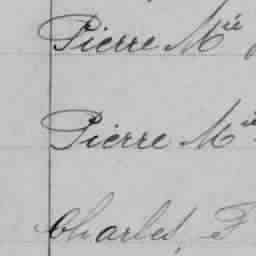 Pierre Mie
Pierre Mie
Charles, F